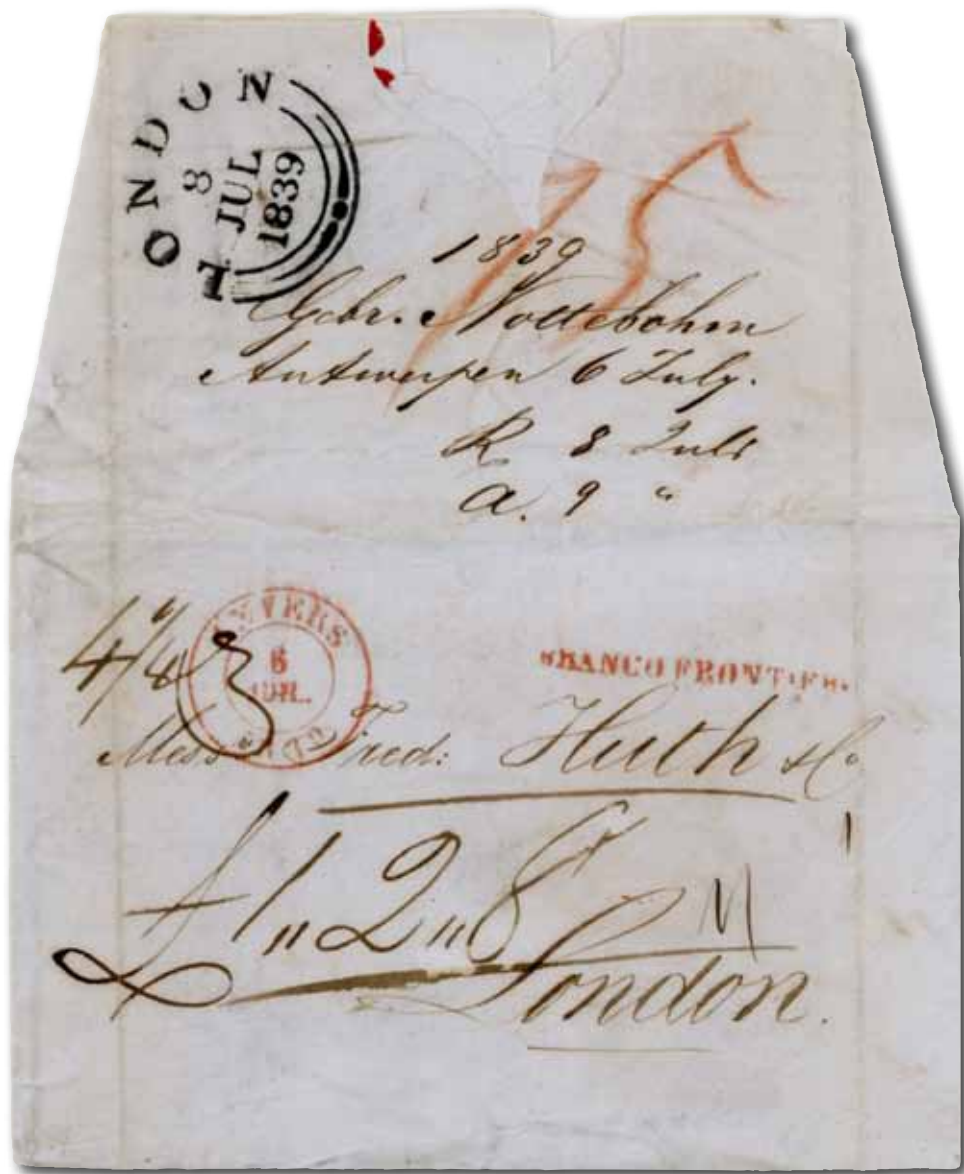 LONDON
8
JUL
1839
15
1839
Gebr. Nottebohm
Antwerpen 6 July.
R 8 Juli
a. 9 "
ANVERS
6
JUIL.
FRANCO FRONTIER
4/4
Mess Fred: Huth & Co
£ 1 " 2 " 8
London.